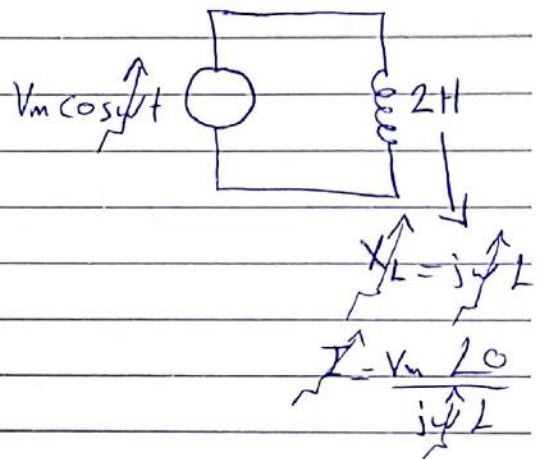 Vm cosωt
2H
XL = jωL
I = Vm ∠0
jωL